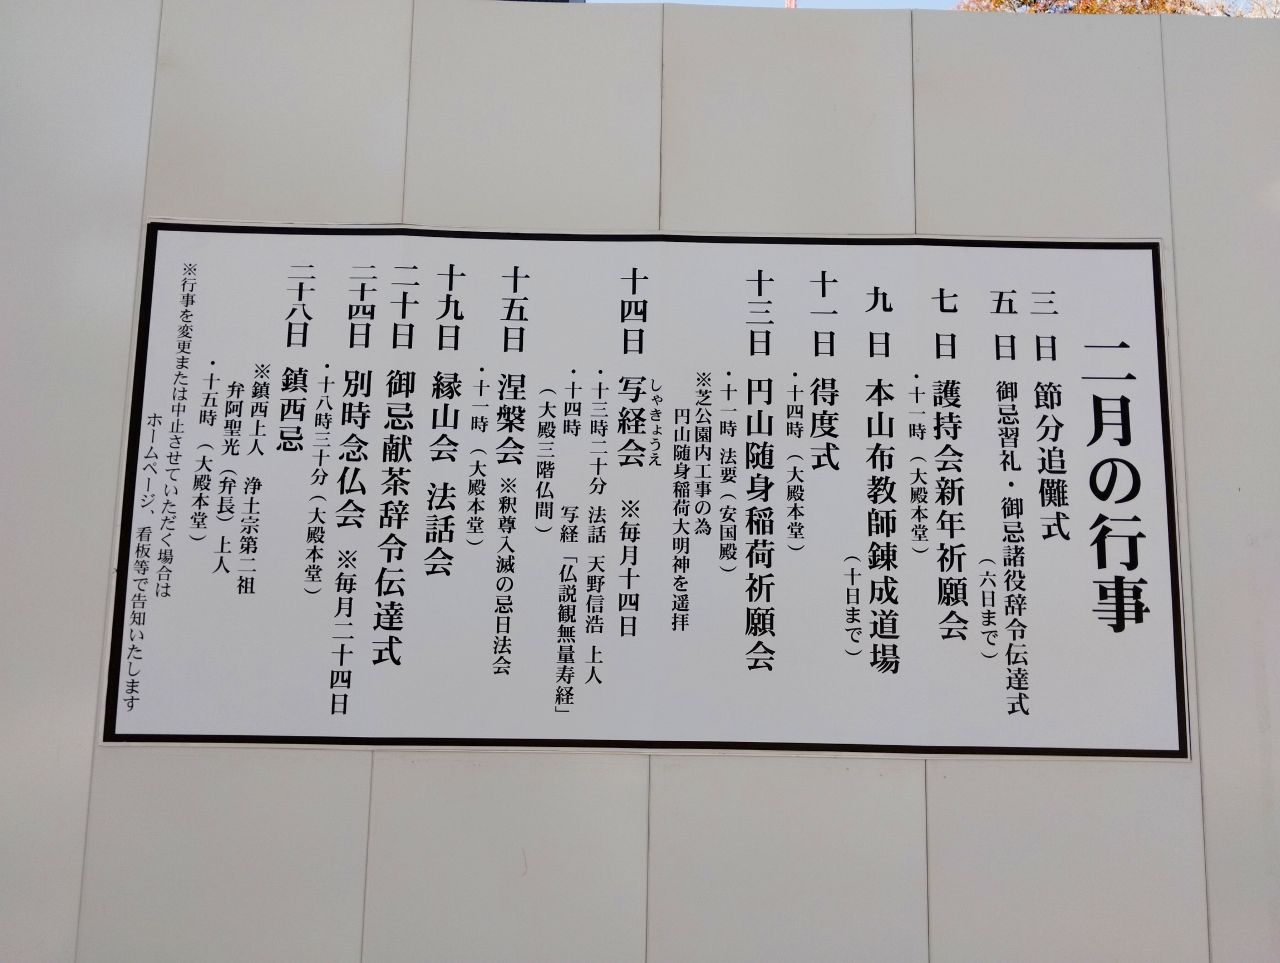 二月の行事
三日 節分追儺式
五日 御忌習礼・御忌諸役辞令伝達式
（六日まで）
七日 護持会新年祈願会
・十一時（大殿本堂）
九日 本山布教師錬成道場
（十日まで）
十一日 得度式
・十四時（大殿本堂）
十三日 円山随身稲荷祈願会
・十一時 法要（安国殿）
※芝公園内工事の為
円山随身稲荷大明神を遥拝
しゃきょうえ
十四日 写経会 ※毎月十四日
・十三時二十分 法話 天野信浩 上人
・十四時 写経「仏説観無量寿経」
（大殿三階仏間）
十五日 涅槃会 ※釈尊入滅の忌日法会
・十一時（大殿本堂）
十九日 縁山会 法話会
二十日 御忌献茶辞令伝達式
二十四日 別時念仏会 ※毎月二十四日
・十八時三十分（大殿本堂）
二十八日 鎮西忌
※鎮西上人 浄土宗第二祖
弁阿聖光（弁長）上人
・十五時（大殿本堂）
※行事を変更または中止させていただく場合は
ホームページ、看板等で告知いたします